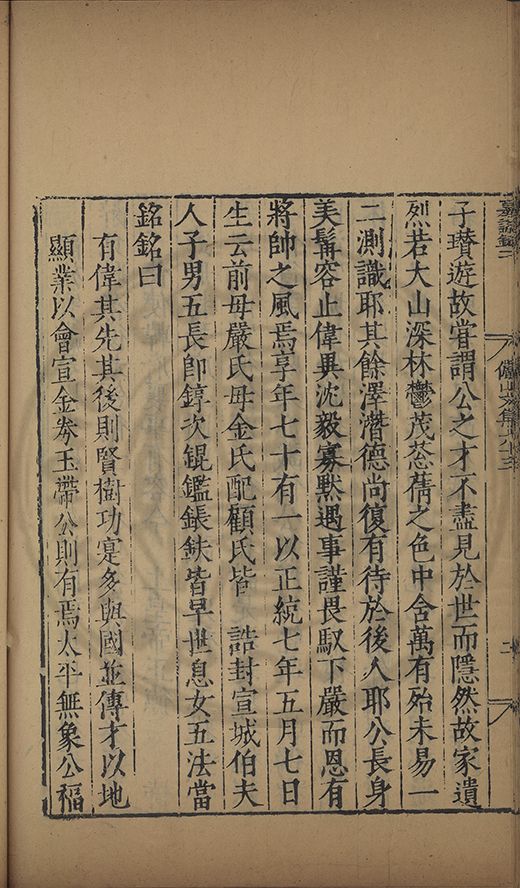 子瓚遊故嘗謂公之才不盡見於世而隱然故家遺
烈若大山深林鬱茂蒼蒨之色中含萬有殆未易一
二測識耶其餘澤潛德尚復有待於後人耶公長身
美髯容止偉異沈毅寡默遇事謹畏馭下嚴而恩有
將帥之風焉享年七十有一以正統七年五月七日
生云前母嚴氏母金氏配顧氏皆 誥封宣城伯夫
人子男五長卽錞次錕鑑鋹鈇皆早世息女五法當
銘銘曰
有偉其先其後則賢樹功寔多與國並傳才以地
顯業以會宣金劵玉帶公則有焉太平無象公福